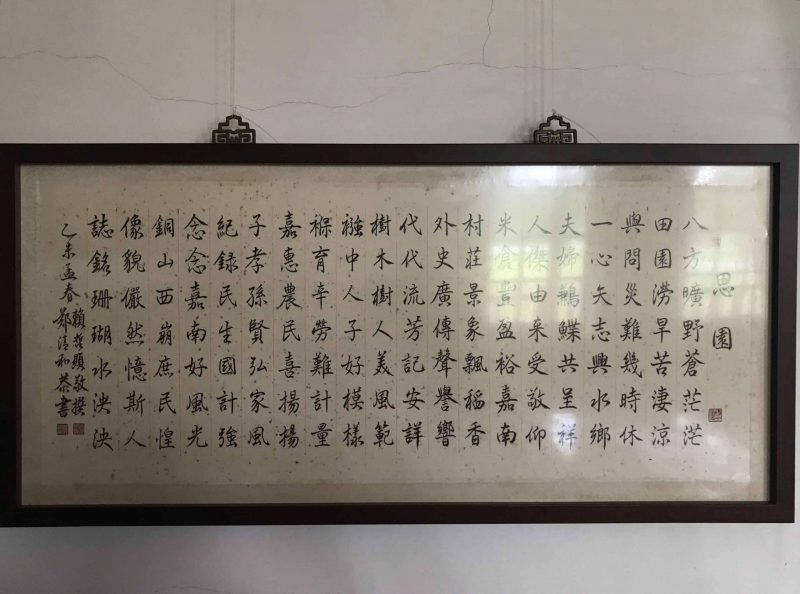 思園
八方曠野蒼茫茫
田園澇旱苦淒涼
與問災難幾時休
一心矢志興水鄉
夫婦鶼鰈共呈祥
人傑由来受敬仰
米倉豐盈裕嘉南
村莊景象飄稻香
外史廣傳聲譽響
代代流芳記安詳
樹木樹人美風範
襁中人子好模樣
褓育辛勞難計量
嘉惠農民喜揚揚
子孝孫賢弘家風
紀錄民生國計強
念念嘉南好風光
銅山西崩庶民惶
像貌儼然憶斯人
誌銘珊瑚水泱泱
乙未孟春
賴哲顯敬撰
鄭清和恭書